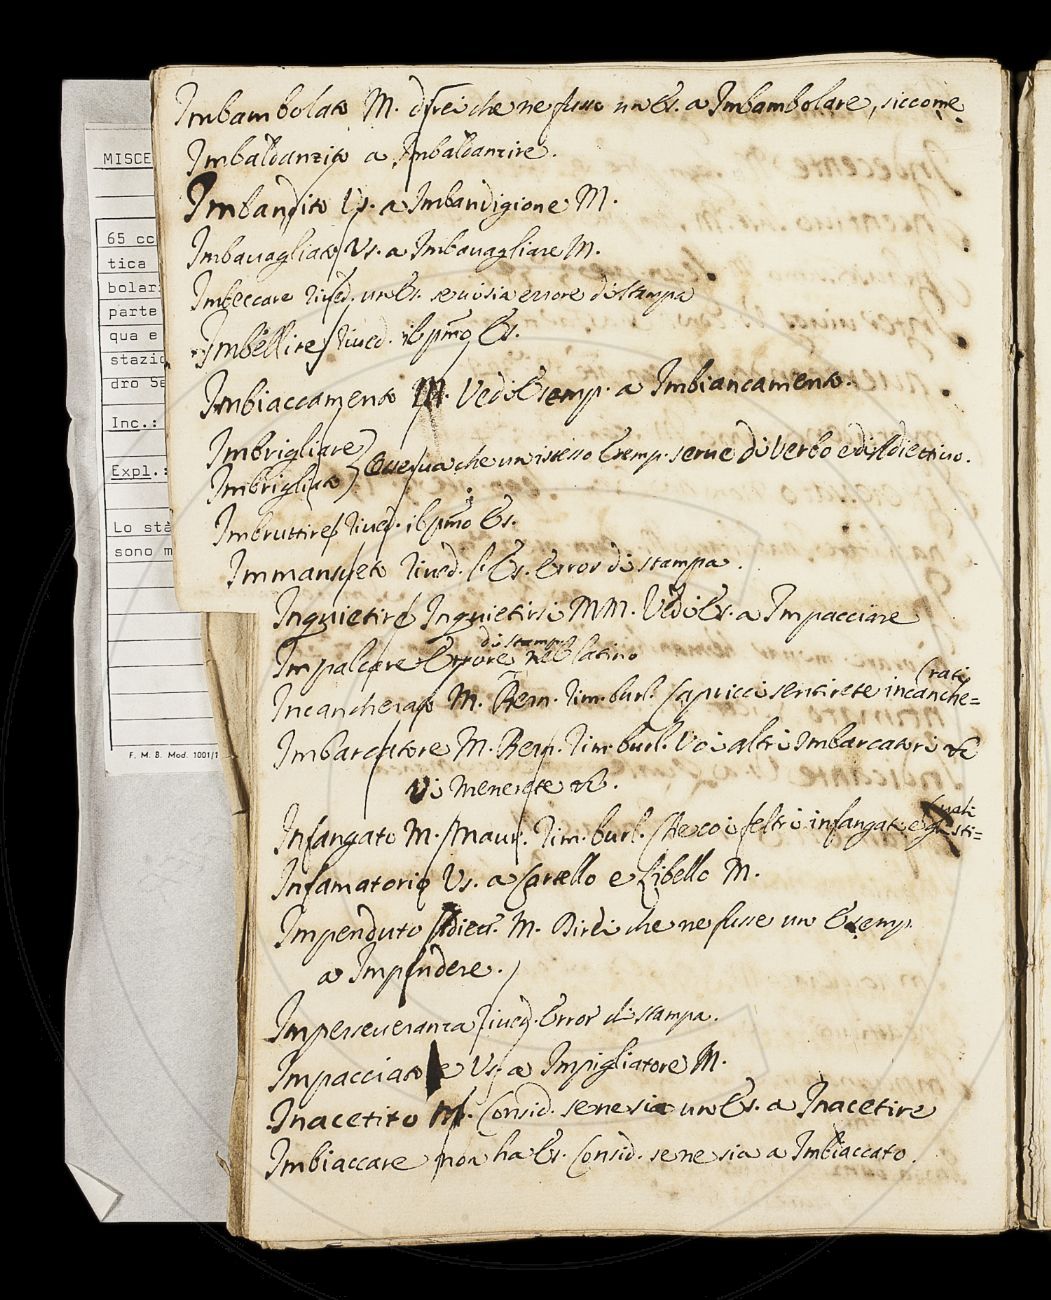 MISCE
65 cc
tica
bolar
parte
qua e
stazio
dro Se
Inc.:
Expl.:
Lo stà
sono m
F. M. B. Mod. 1001/1
Imbambolato M. direi che ne fusse un Es. a Imbambolare, siccome
Imbaldanzito a Imbaldanzire.
Imbandito Vs. a Imbandigione M.
Imbavagliato Vs. a Imbavagliare M.
Imbeccare Rived. un Es. se vi sia errore di stampa
Imbellire Rived. il pmo Es.
Imbiaccamento M. Vedi Esemp. a Imbiancamento.
Imbrigliare
Imbrigliato Osserva che un istesso Esemp. serve di verbo e di Addiettivo.
Imbruttire Rived. il pmo Es.
Immansueto Rived. l'Es. Error di stampa.
Inquietire Inquietirsi MM. Vedi Es. a Impacciare
Impalcare Errore di stampa nel latino
Incancherato M. Bern. Rim. burl. Capricci sentirete incanche=
rati
Imbarcatore M. Bern. Rim. burl. Voi altri Imbarcatori &c
Vi menerete &c.
Infangato M. Maur. Rim. burl. infangati e
Infamatorio Vs. a Cartello e Libello M.
Impenduto Addiet. M. Direi che ne fusse un Esemp.
a Impendere.
Imperseveranza Rived. Error di stampa.
Impacciatore Vs. a Impigliatore M.
Inacetito M. Consid. se ne sia un Es. a Inacetire
Imbiaccare non ha Es. Consid. se ne sia a Imbiaccato.